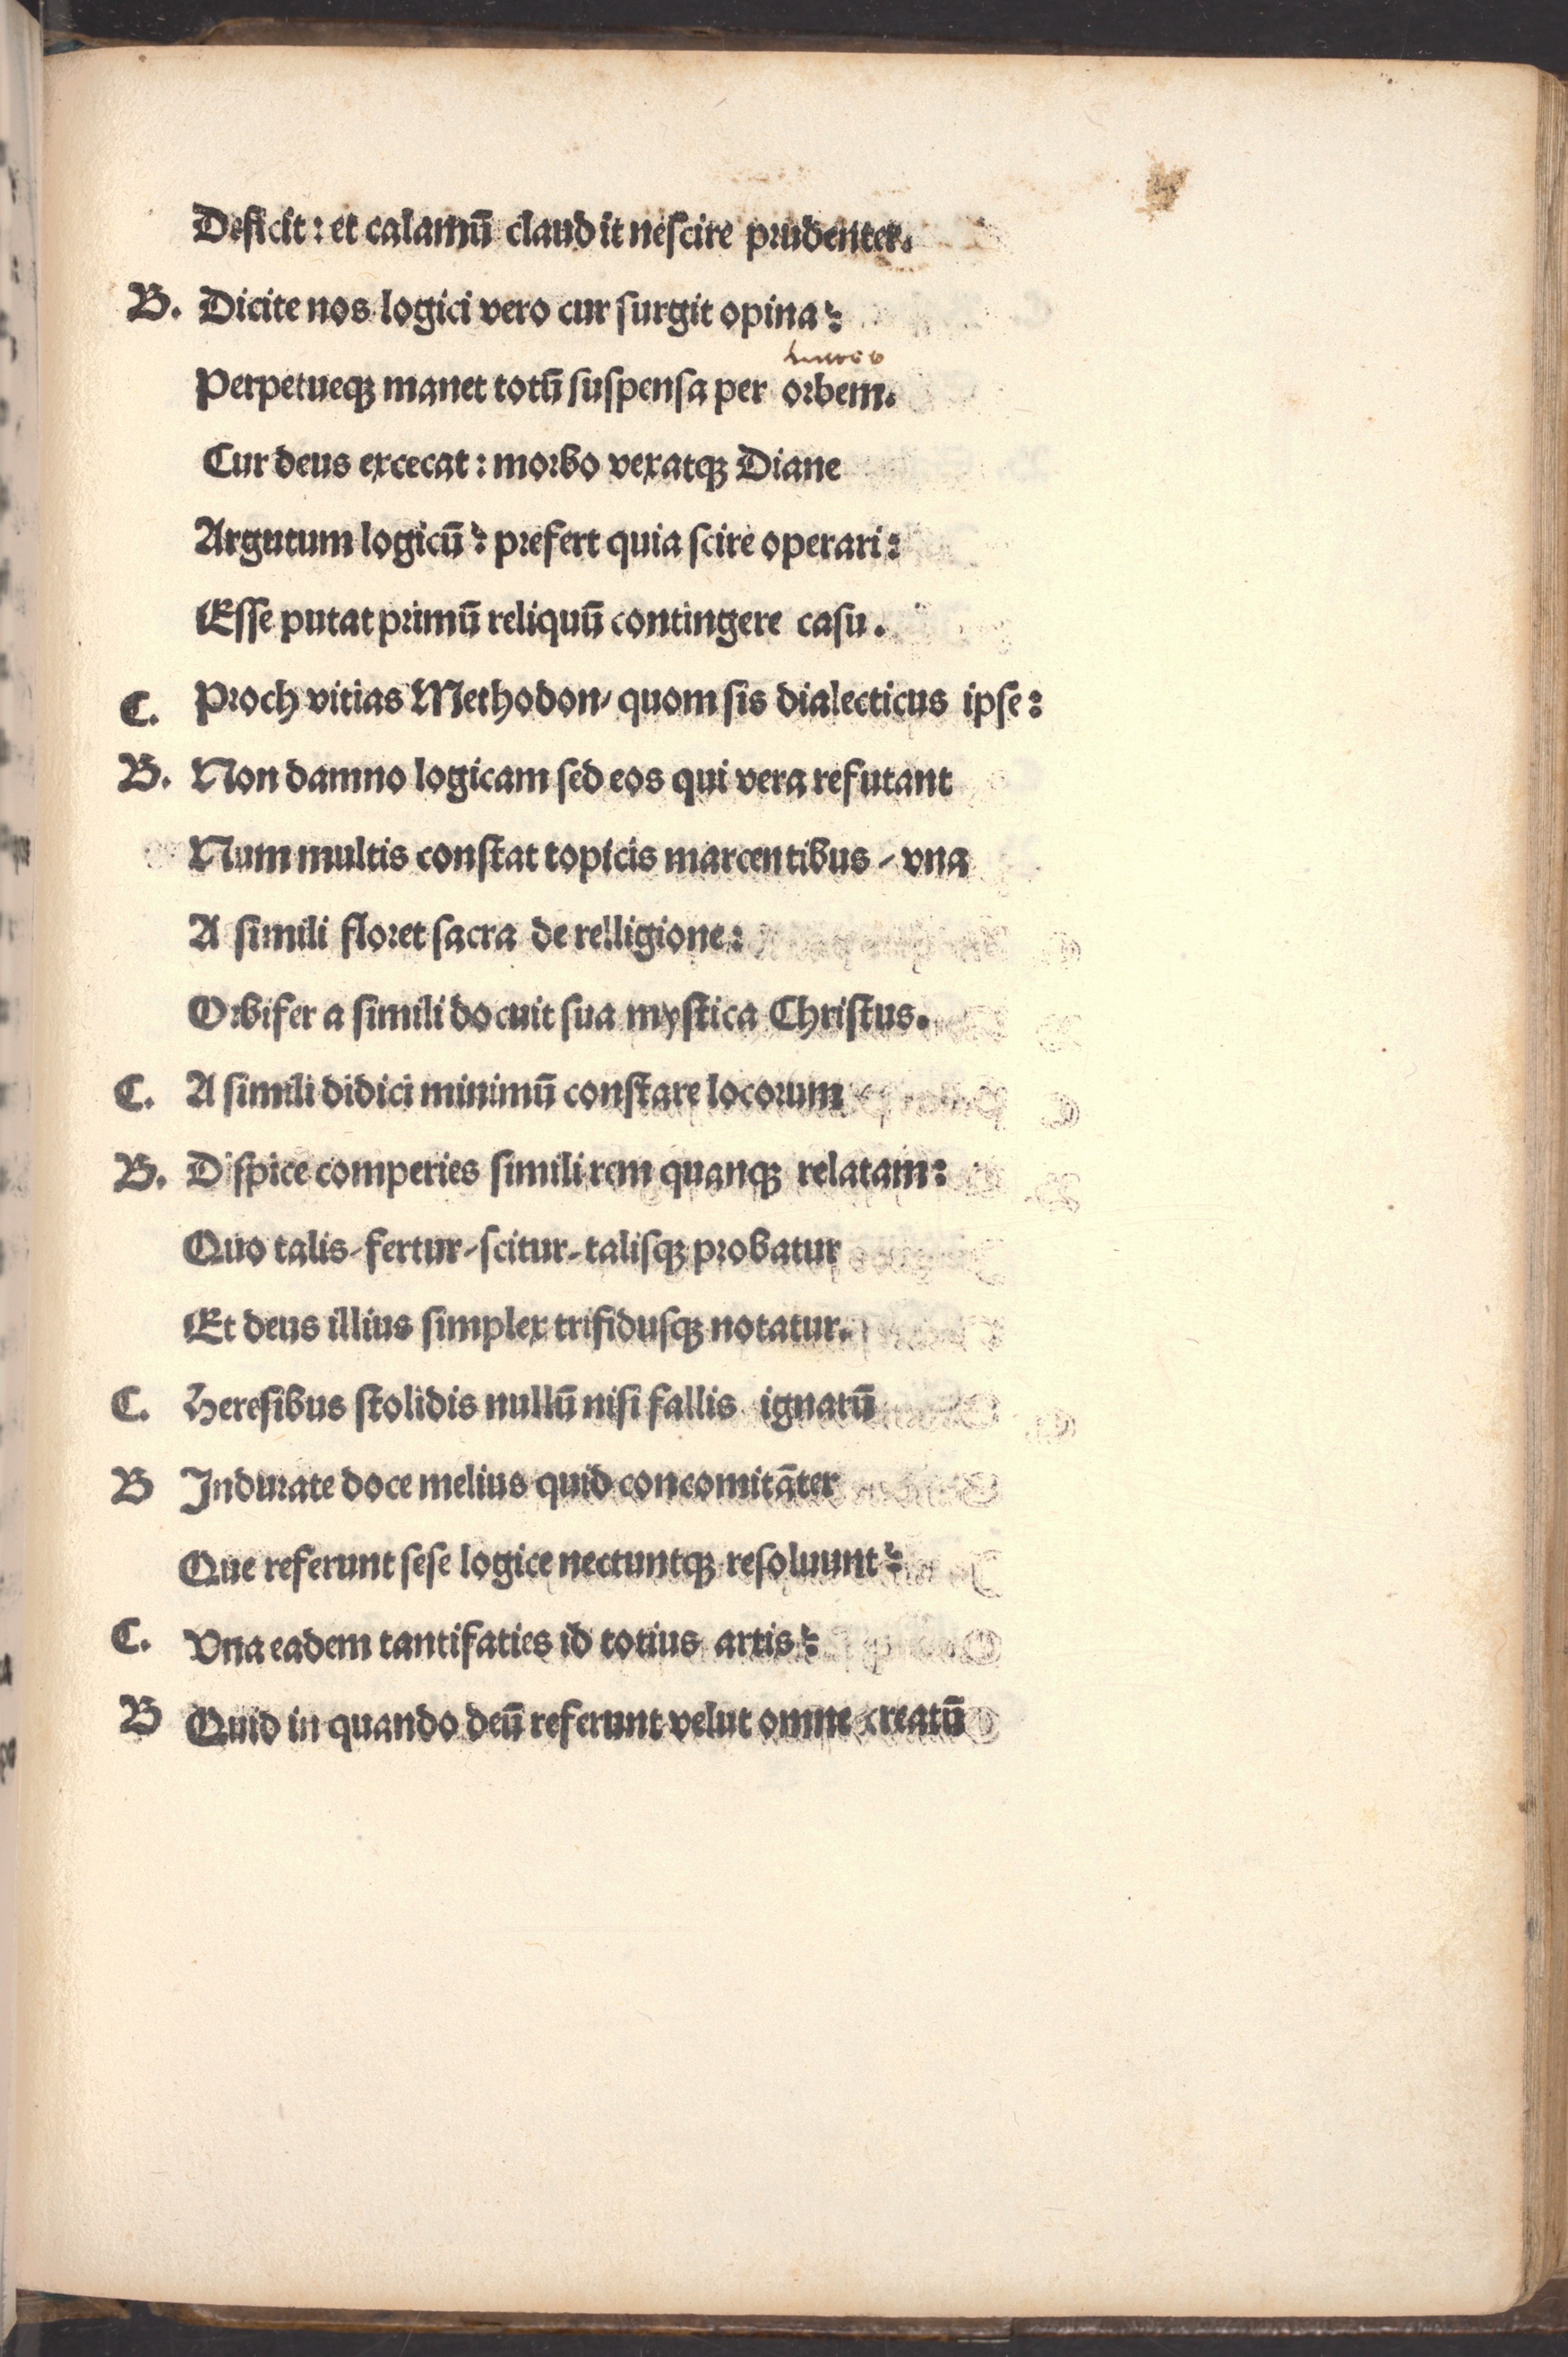 Deficit : et calamū claudit nescire prudenter.
B. Dicite nos logici vero cur surgit opina :
Perpetueqȝ manet totū suspensa per orbem.
Cur deus excecat : morbo vexatqȝ Diane
Argutum logicū : prefert quia scire operari :
Esse putat primū reliquū contingere casu .
C. Proch vitias Methodon/ quom sis dialecticus ipse :
B. Non damno logicam sed eos qui vera refutant
Num multis constat topicis marcentibus / vna
A simili floret sacra de relligione :
Orbifer a simili docuit sua mystica Christus.
C. A simili didici minimū constare locorum
B. Dispice comperies simili rem quanqȝ relatam :
Quo talis/ fertur/ scitur/ talisqȝ probatur
Et deus illius simplex trifidusqȝ notatur.
C. Heresibus stolidis nullū nisi fallis ignarū
B Indurate doce melius quid concomitāter
Que referunt sese logice nectuntqȝ resoluunt :
C. Vna eadem tantifaties id totius artis :
B Quid in quando deū referunt velut omne creatū